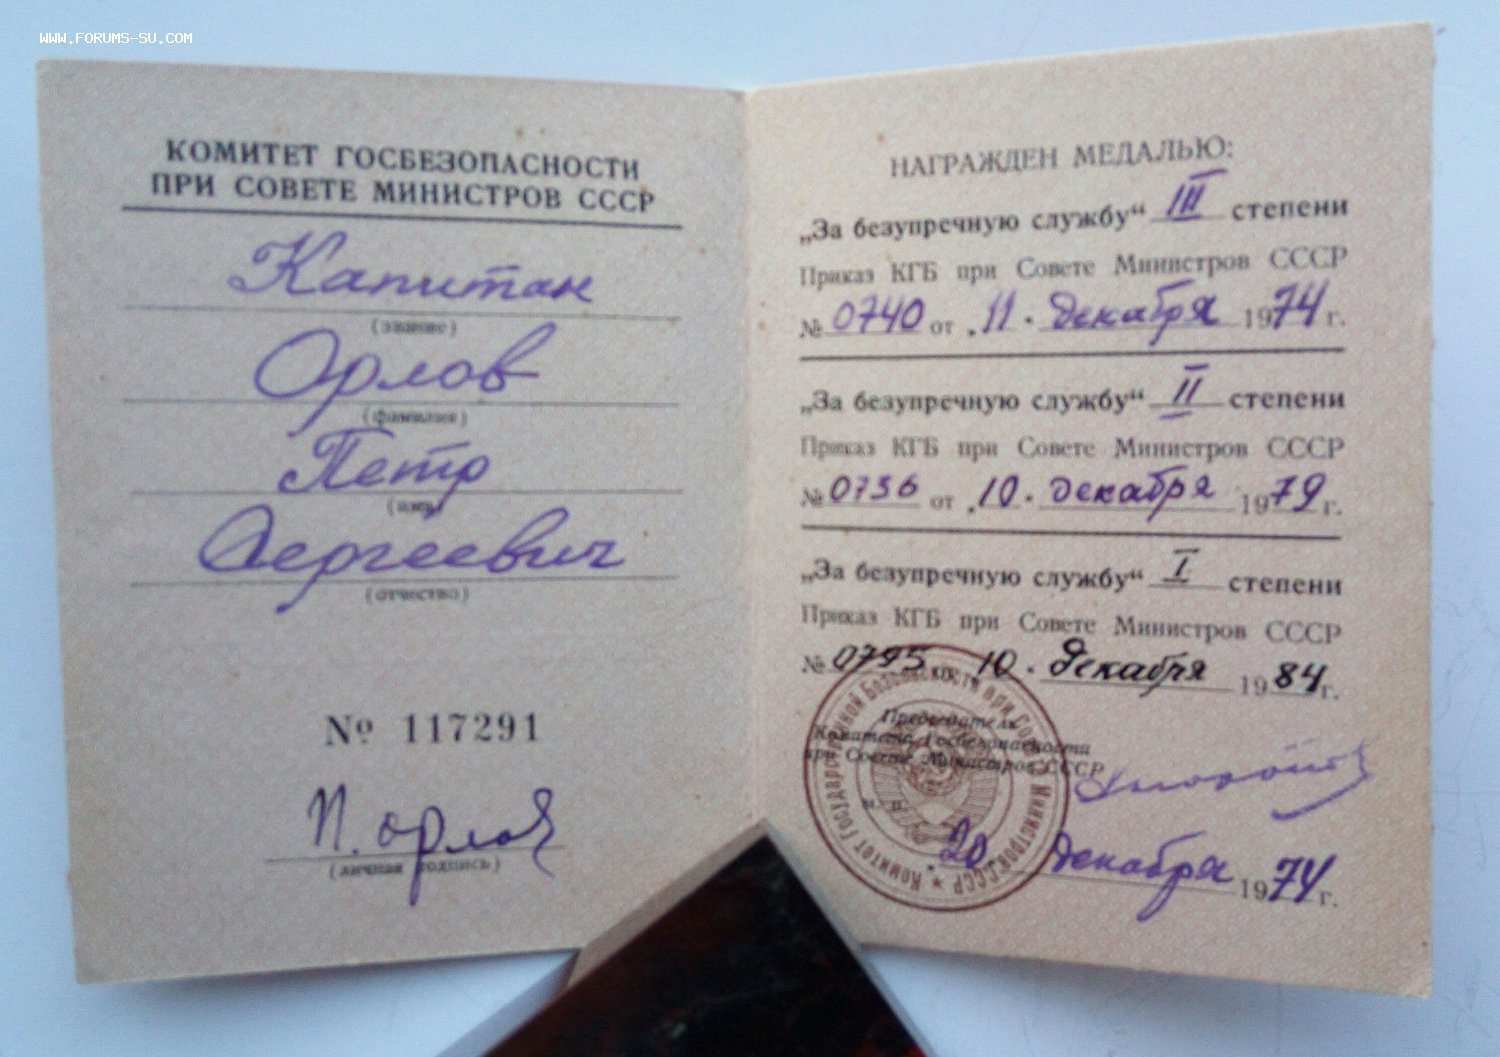 WWW.FORUMS-SU.COM
КОМИТЕТ ГОСБЕЗОПАСНОСТИ
ПРИ СОВЕТЕ МИНИСТРОВ СССР
Капитан
(звание)
Орлов
(фамилия)
Петр
(имя)
Сергеевич
(отчество)
№ 117291
П. Орлов
(личная подпись)
НАГРАЖДЕН МЕДАЛЬЮ:
„За безупречную службу“ III степени
Приказ КГБ при Совете Министров СССР
№ 0740 от „11. декабря 1974 г.
„За безупречную службу“ II степени
Приказ КГБ при Совете Министров СССР
№ 0736 от „10. декабря 1979 г.
„За безупречную службу“ I степени
Приказ КГБ при Совете Министров СССР
№ 0795 от „10. декабря 1984 г.
Председатель
Комитета Госбезопасности
при Совете Министров СССР
м. п.
„20 декабря 1974 г.
Комитет Государственной Безопасности при Совете Министров СССР